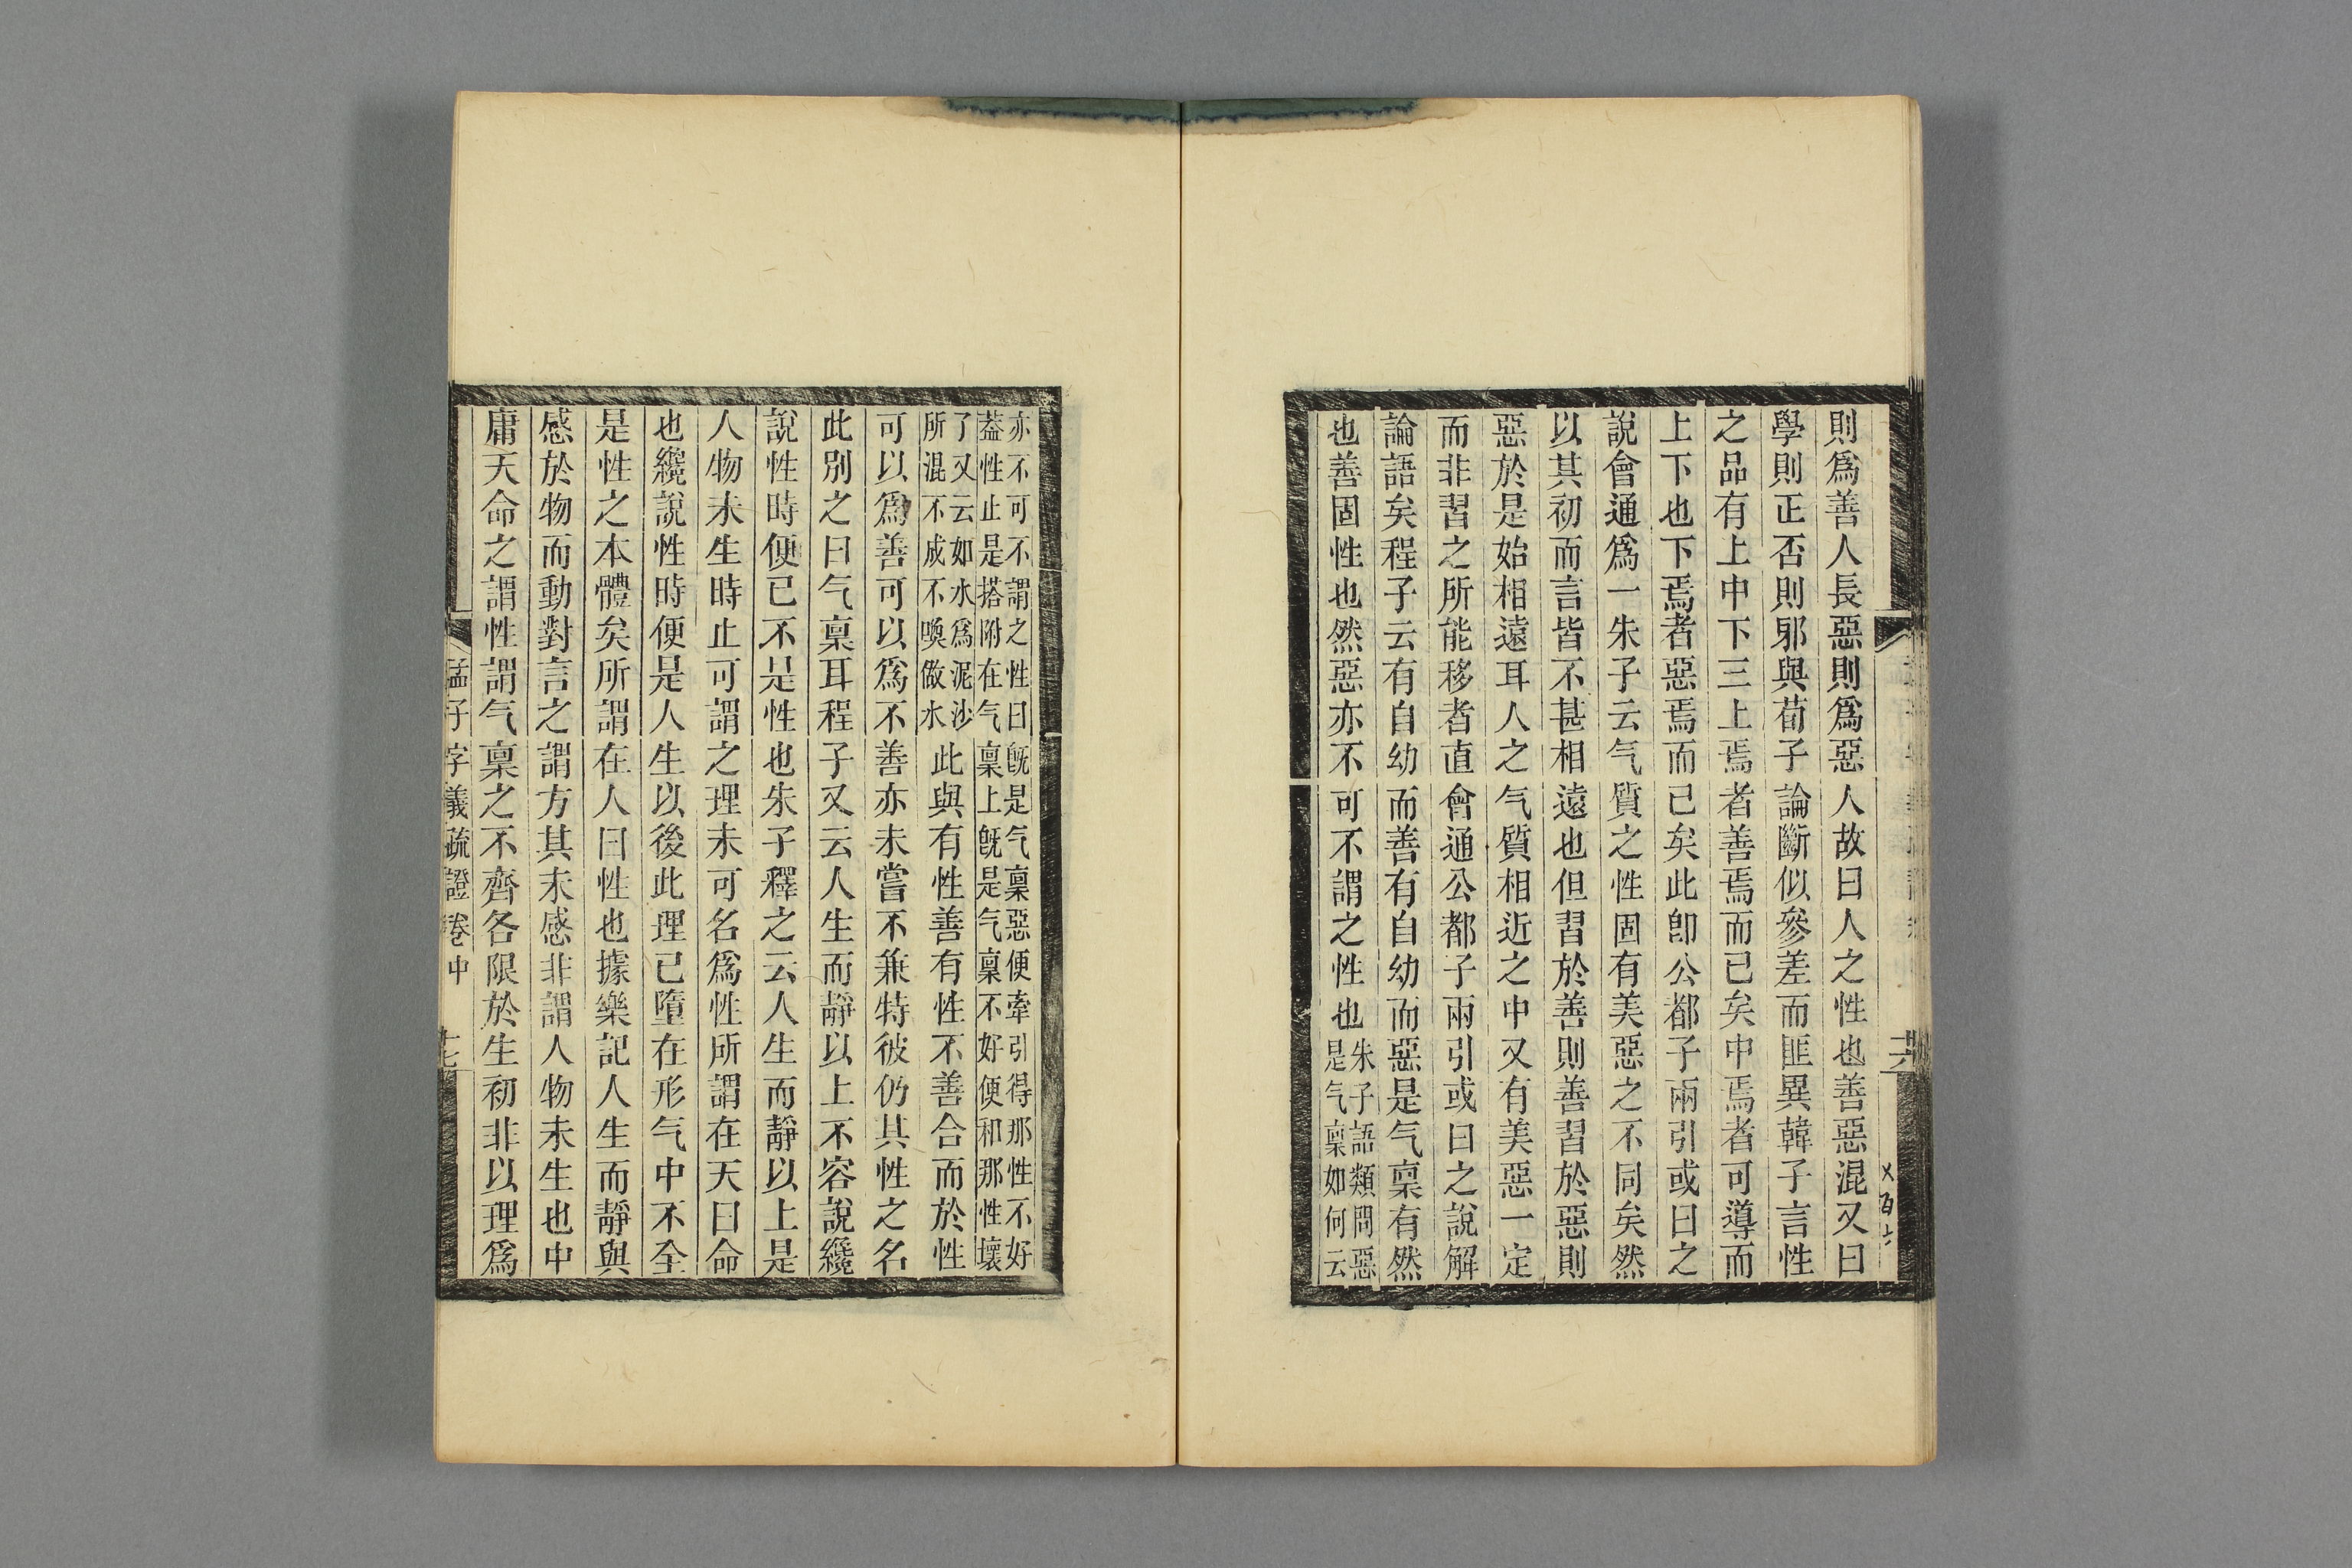 則爲善人長惡則爲惡人故曰人之性也善惡混又曰
學則正否則邪與荀子論斷似參差而匪異韓子言性
之品有上中下三上焉者善焉而已矣中焉者可導而
上下也下焉者惡焉而已矣此卽公都子兩引或曰之
說會通爲一朱子云气質之性固有美惡之不同矣然
以其初而言皆不甚相遠也但習於善則善習於惡則
惡於是始相遠耳人之气質相近之中又有美惡一定
而非習之所能移者直會通公都子兩引或曰之說解
論語矣程子云有自幼而善有自幼而惡是气稟有然
也善固性也然惡亦不可不謂之性也朱子語類問惡是气稟如何云
亦不可不謂之性曰旣是气稟惡便牽引得那性不好
葢性止是搭附在气稟上旣是气稟不好便和那性壞
了又云如水爲泥沙所混不成不喚做水此與有性善有性不善合而於性
可以爲善可以爲不善亦未嘗不兼特彼仍其性之名
此別之曰气稟耳程子又云人生而靜以上不容說纔
說性時便已不是性也朱子釋之云人生而靜以上是
人物未生時止可謂之理未可名爲性所謂在天曰命
也纔說性時便是人生以後此理已墮在形气中不全
是性之本體矣所謂在人曰性也據樂記人生而靜與
感於物而動對言之謂方其未感非謂人物未生也中
庸天命之謂性謂气稟之不齊各限於生初非以理爲
孟子字義疏證卷中
十七